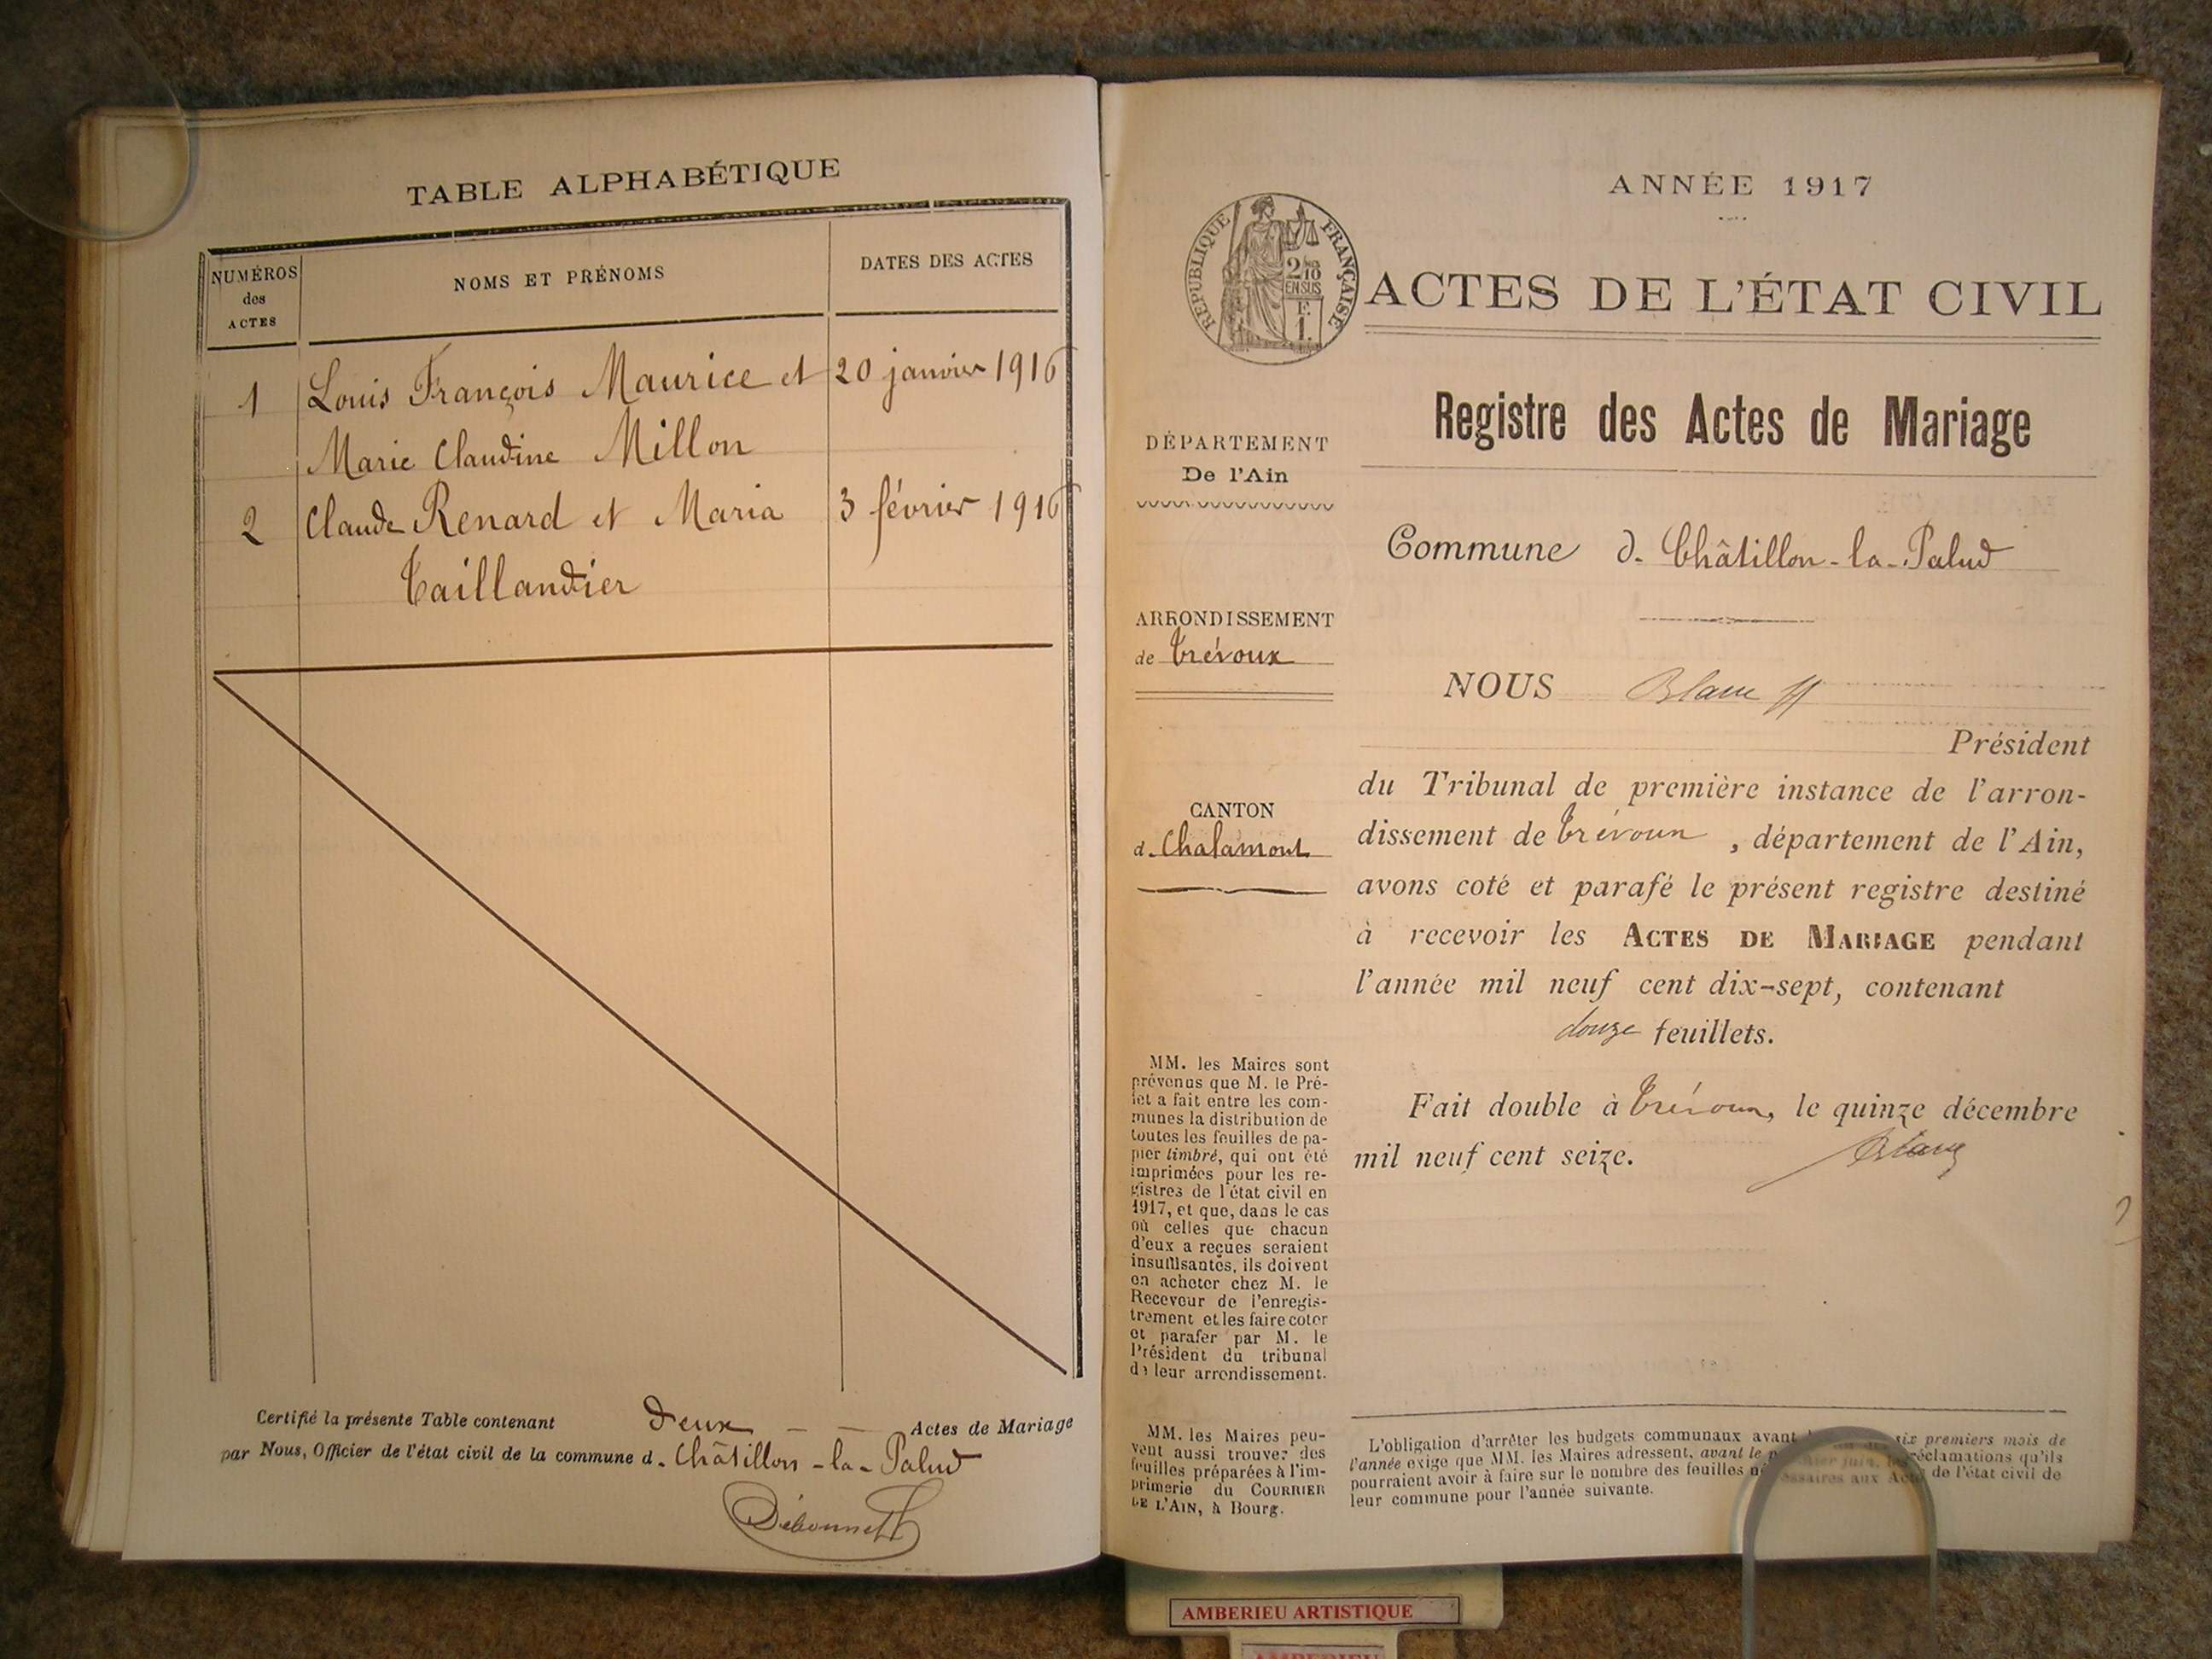 TABLE ALPHABÉTIQUE
NUMÉROS
des
ACTES
NOMS ET PRÉNOMS
DATES DES ACTES
1 Louis François Maurice et 20 janvier 1916
Marie Claudine Millon
2 Claude Renard et Maria 3 février 1916
Taillandier
Certifié la présente Table contenant deux Actes de Mariage
par Nous, Officier de l'état civil de la commune d. Châtillon-la-Palud
ANNÉE 1917
RÉPUBLIQUE FRANÇAISE
2/10
EN SUS
F.
1.
ACTES DE L'ÉTAT CIVIL
Registre des Actes de Mariage
DÉPARTEMENT
De l'Ain
Commune d. Châtillon-la-Palud
ARRONDISSEMENT
de Trévoux
NOUS Blanc
Président
du Tribunal de première instance de l'arron-
dissement de Trévoux, département de l'Ain,
avons coté et parafé le présent registre destiné
à recevoir les ACTES DE MARIAGE pendant
l'année mil neuf cent dix-sept, contenant
douze feuillets.
Fait double à Trévoux, le quinze décembre
mil neuf cent seize.
Blanc
CANTON
d. Chalamont
MM. les Maires sont
prévenus que M. le Pré-
fet a fait entre les com-
munes la distribution de
toutes les feuilles de pa-
pier timbré, qui ont été
imprimées pour les re-
gistres de l'état civil en
1917, et que, dans le cas
où celles que chacun
d'eux a reçues seraient
insuffisantes, ils doivent
en acheter chez M. le
Receveur de l'enregis-
trement et les faire coter
et parafer par M. le
Président du tribunal
de leur arrondissement.
MM. les Maires peu-
vent aussi trouver des
feuilles préparées à l'im-
primerie du COURRIER
DE L'AIN, à Bourg.
L'obligation d'arrêter les budgets communaux avant six premiers mois de
l'année exige que MM. les Maires adressent, avant le premier juin, les réclamations qu'ils
pourraient avoir à faire sur le nombre des feuilles nécessaires aux Actes de l'état civil de
leur commune pour l'année suivante.
AMBERIEU ARTISTIQUE
AMBERIEU